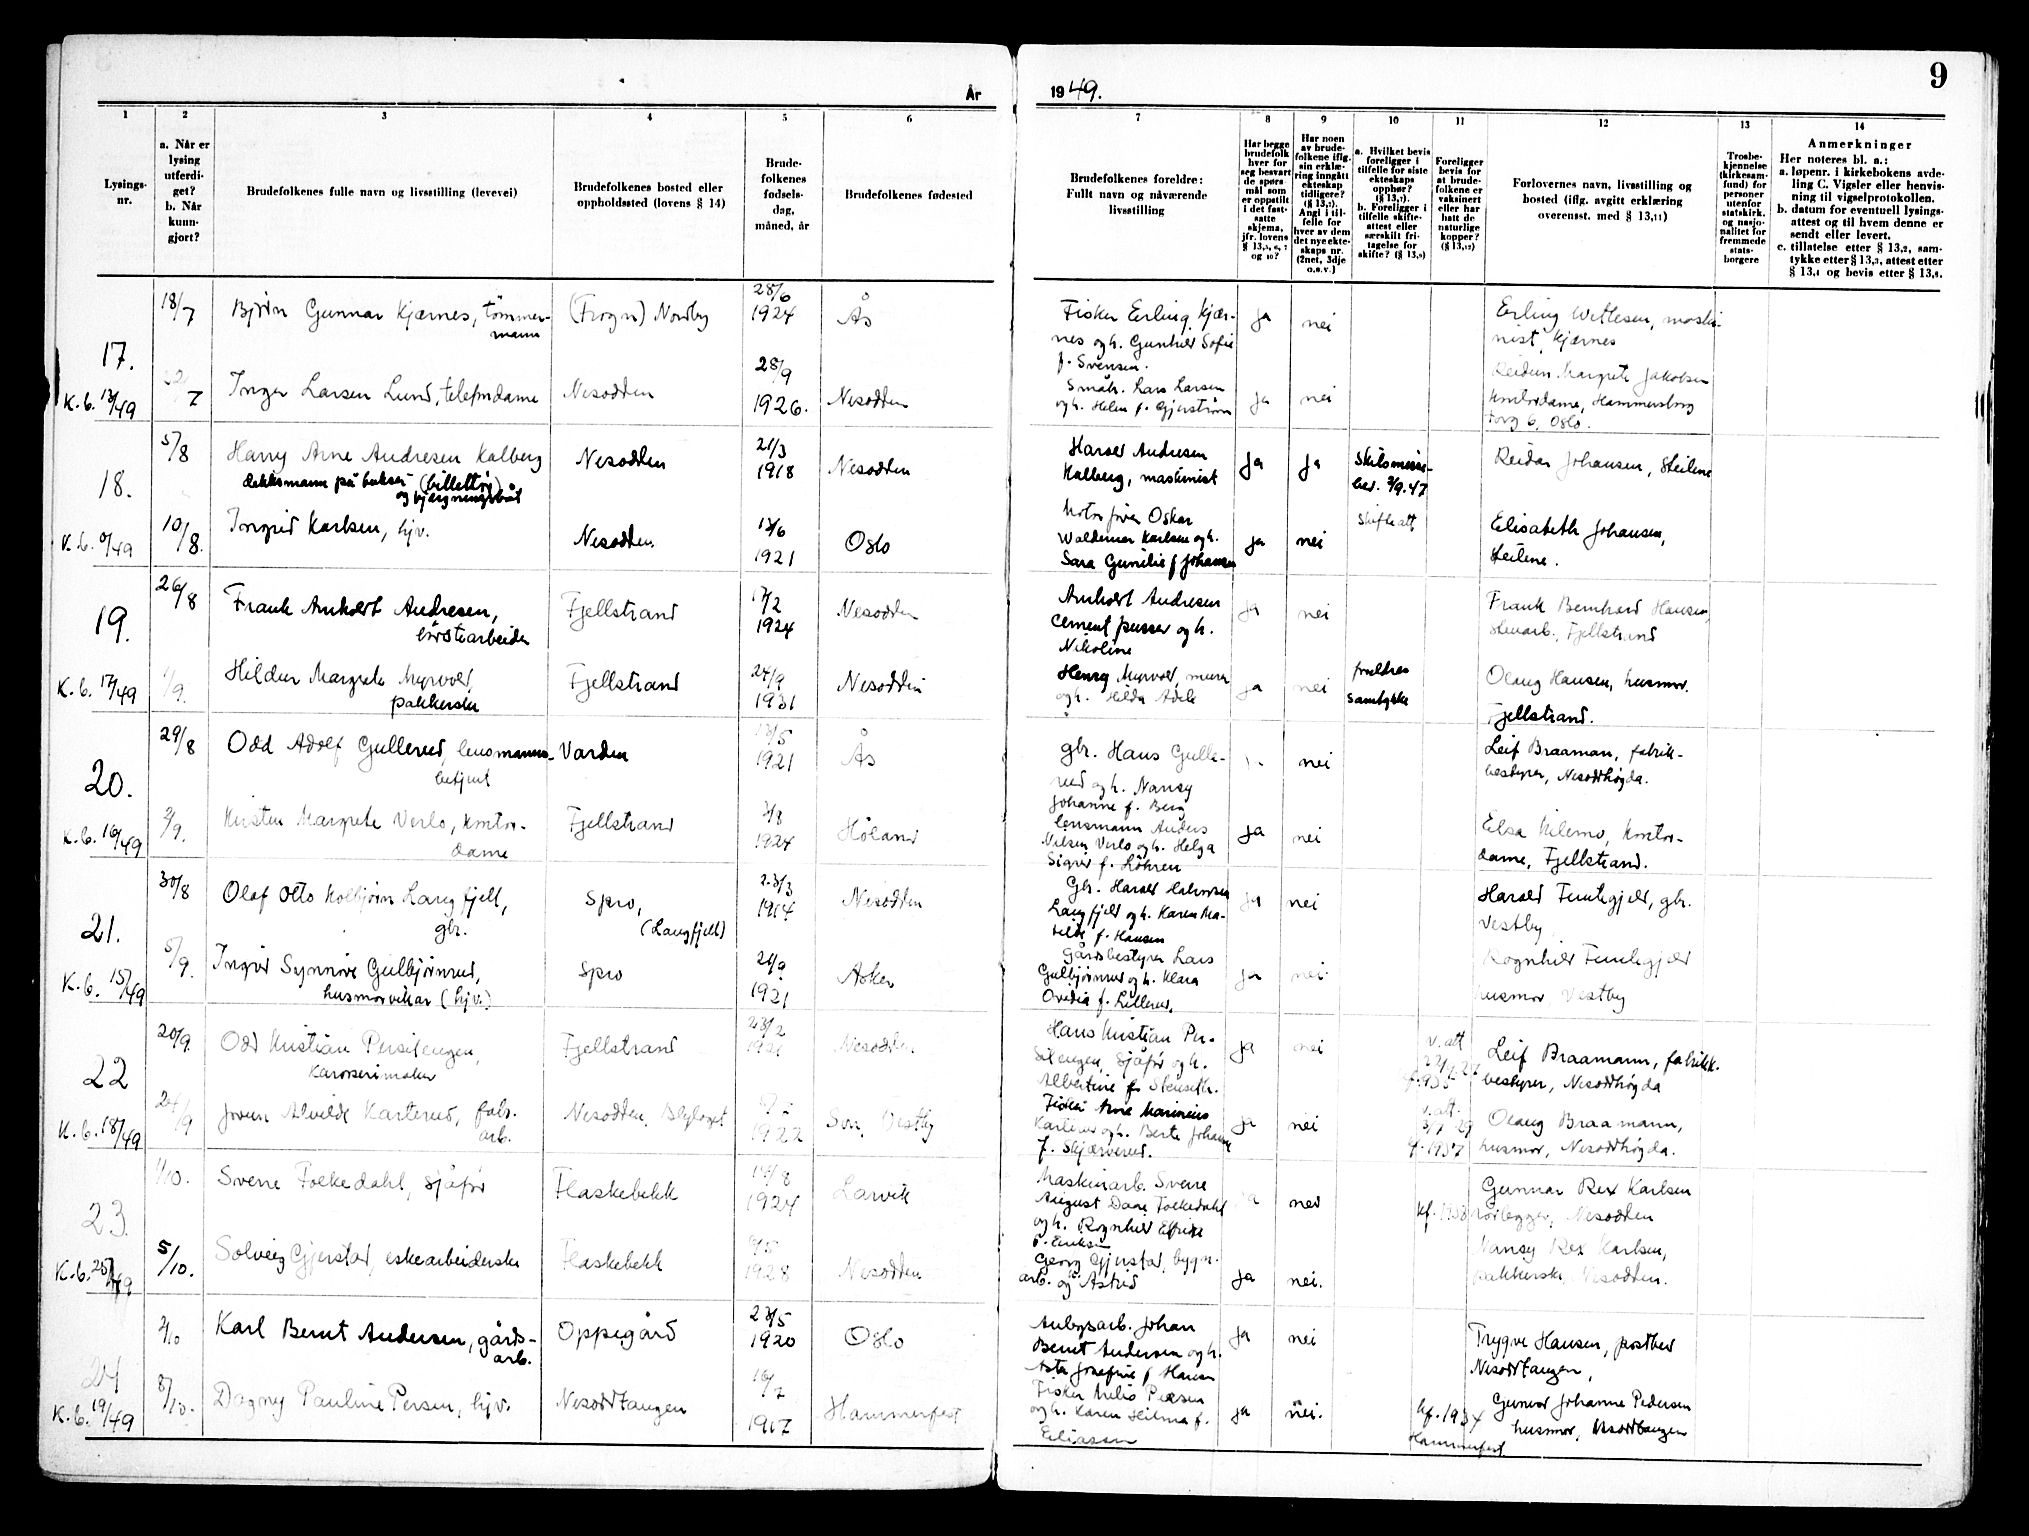 År
1949.
9
1
2
3
4
5
6
7
8
9
10
11
12
13
14
Lysings-
nr.
a. Når er
lysing
utferdi-
get?
b. Når
kunn-
gjort?
Brudefolkenes fulle navn og livsstilling (levevei)
Brudefolkenes bosted eller
oppholdssted (lovens § 14)
Brude-
folkenes
fødsels-
dag,
måned, år
Brudefolkenes fødested
Brudefolkenes foreldre:
Fullt navn og nåværende
livsstilling
Har begge
brudefolk
hver for
seg besvart
de spørs-
mål som
er oppstilt
i det fast-
satte
skjema,
jfr. lovens
Har noen
av brude-
folkene iflg.
sin erklæ-
ring inngått
ekteskap
tidligere?
Angi i til-
felle for
hver av dem
det nye ekte-
skaps nr.
(2net, 3dje
o.s.v.)
a. Hvilket bevis
foreligger i
tilfelle for siste
ekteskaps
opphør?
b. Foreligger i
tilfelle skifte-
attest eller
særskilt fri-
tagelse for
skifte?
Foreligger
bevis for
at brude-
folkene er
vaksinert
eller har
hatt de
naturlige
kopper?
Forlovernes navn, livsstilling og
bosted (iflg. avgitt erklæring
overensst. med § 13,11)
Trosbe-
kjennelse
(kirkesam-
fund) for
personer
utenfor
statskirk.
og nasjo-
nalitet for
fremmede
stats-
borgere
Anmerkninger
Her noteres bl. a.:
a. løpenr. i kirkebokens avde-
ling C. Vigsler eller henvis-
ning til vigselprotokollen.
b. datum for eventuell lysings-
attest og til hvem denne er
sendt eller levert.
c. tillatelse etter § 13,2, sam-
tykke etter § 13,3, attest etter
17.
K.b. 13/49
18/7
Bjørn Gunnar Kjærnes, tømmer-
mann
(Frogn) Nordby
28/6
1924
Ås
Fisker Erling Kjær-
nes og h. Gunhild Sofie
f. Svensen.
ja
nei
Erling Wetlesen, maski-
nist, Kjærnes
7
Inger Larsen Lund, telefondame
Nesodden
28/9
1926.
Nesodden
Småbr. Lars Larsen
og h. Helen f. Gjerstrøm
ja
nei
Reidun Margrete Jakobsen
kontordame, Hammersborg
torg 6, Oslo.
18.
K.b. /49
5/8
Harry Arne Andresen Kalberg
dekksmann på bukser (billettør)
og bjergningsbåt
Nesodden
21/3
1918
Nesodden
Harald Andresen
Kalberg, maskinist
ja
ja
Skilsmisse-
bev. 3/9.47
Reidar Johansen, Steilene
10/8.
Ingrid Karlsen, hjv.
Nesodden
13/6
1921
Oslo
Motorfører Oskar
Waldemar Karlsen og h.
Sara Gunilie f Johansen
ja
nei
Skifteatt.
Elisabeth Johansen,
Steilene.
19.
K.b. 17/49
26/8
Frank Anholt Andresen,
børstearbeider
Fjellstrand
17/2
1924
Nesodden
Anholt Andresen
Cement pusser og h.
Nikoline
ja
nei
Frank Bernhard Hansen,
Fjellstrand
/9.
Hildur Margrete Myrvold,
pakkerske
Fjellstrand
24/9
1931
Nesodden
Henry Myrvold, murer
og h. Hilda Adele
ja
nei
foreldres
samtykke
Olaug Hansen, husmor.
Fjellstrand.
20.
K.b. 16/49
29/8
Odd Adolf Gullerud, lensmanns-
betjent
Varden
13/5
1921
Ås
gbr. Hans Gulle-
rud og h. Nancy
Johanne f. Berg
nei
Leif Braaman, fabrik-
bestyrer, Nesoddhøgda.
2/9.
Kirsten Margrete Verlo, kontor-
dame
Fjellstrand
3/8
1924
Høland
lensmann Anders
Nilsen Verlo og h. Helga
Sigrid f. Løkren
ja
nei
Elsa Kilemo, kontor-
dame, Fjellstrand.
21.
K.b. 15/49
30/8
Olaf Otto Kolbjørn Langfjell,
gbr.
Spro,
(Langfjell)
23/3
1914
Nesodden
Gbr. Harald
Langfjeld og h. Karen Ma-
tilde f. Hansen
ja
nei
Harald Funtegjeld, gbr.
Vestby
5/9.
Inger Synnøve Gulbjørnrud,
husmorvikar (hjv.)
Spro
21/9
1921
Asker
Gårdsbestyrer Lars
Gulbjørnrud og h. Klara
Ovedia f. Lillerud.
ja
nei.
Ragnhild Funtegjeld
husmor Vestby
22
K.b. 18/49
20/9.
Odd Kristian Persilengen,
Karosserimaker
Fjellstrand
23/2
1921
Nesodden
Hans Kristian Per-
silengen, Sjåfør og h.
Albertine f. Stenseth.
ja
nei
v. att
Leif Braamann, fabrikk-
bestyrer, Nesoddhøgda
24/9
Jorun Alvilde Karterud, fabr.
arb.
Nesodden, Blylaget
1922
Son, Vestby
Fisker Arne Marinius
Karterud og h. Berte Johanne
f. Skjærverud.
ja
nei
v. att.
3/7-29
kf. 1937
Olaug Braamann,
husmor, Nesoddhøgda.
23.
K.b. 25/49
1/10.
Sverre Folkedahl, Sjåfør
Flaskebekk
14/8
1924
Larvik
Maskinarb. Sverre
August Daae Folkedahl
og h. Ragnhild Elfride
f. Eriksen
ja
nei
kf. 1938
Gunnar Rex Karlsen
rørlegger, Nesodden
5/10.
Solveig Gjerstad, eskearbeiderske
Flaskebekk
1928
Nesodden
Georg Gjerstad, bygn.
arb. og Astrid
ja
nei.
Nancy Rex Karlsen,
pakkerske, Nesodden.
24
K.b. 19/49
2/10
Karl Bernt Andersen, gårds-
arb.
Oppegård
23/5
1920
Oslo
Anlegsarb. Johan
Bernt Andersen og h.
Asta Josefine f Hansen
ja
nei
Trygve Hansen, postbud
Nesoddtangen,
8/10.
Dagny Pauline Persen, hjv.
Nesoddtangen
16/7
1917
Hammerfest
Fisker Nilis Persen
og h. Karen Hilma f.
Eliasen
ja
nei.
kf. 1934
Hammerfest
Gunvor Johanne Pedersen
husmor, Nesoddtangen